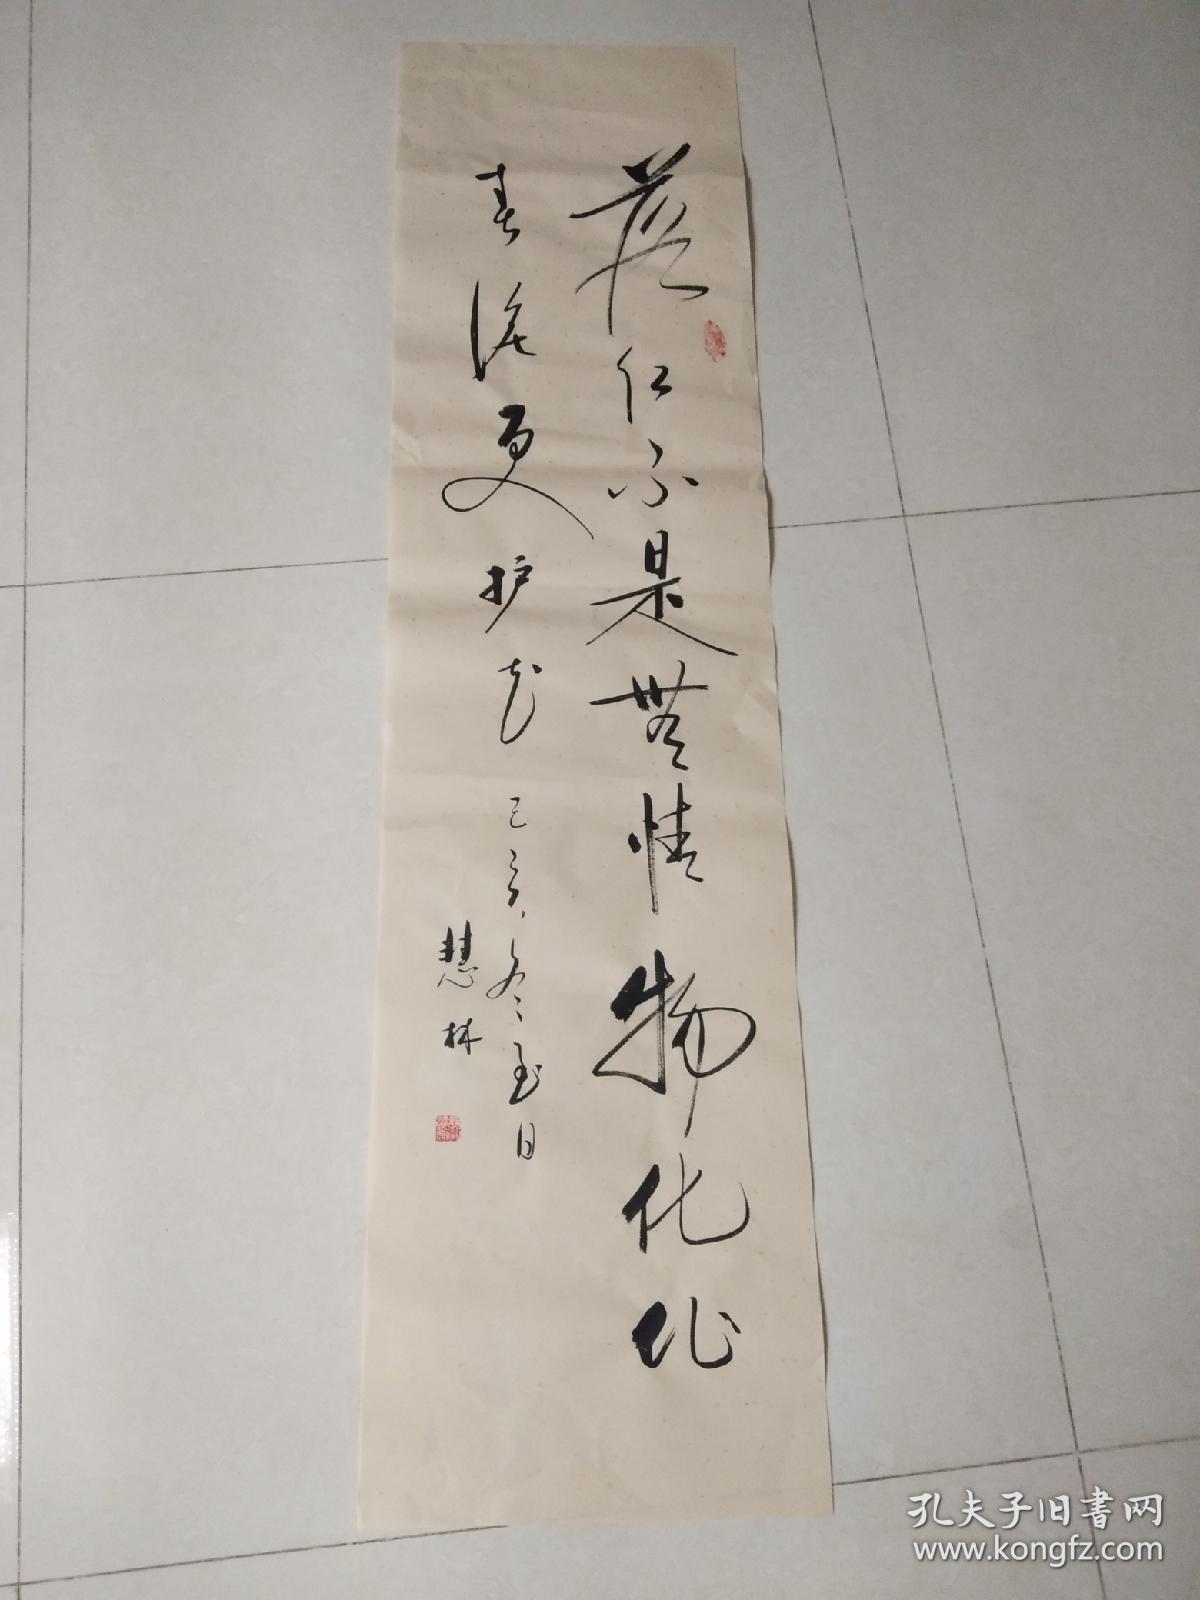 落红不是無情物化作
春泥更护花 己亥冬至日
慧林
孔夫子旧書网
www.kongfz.com